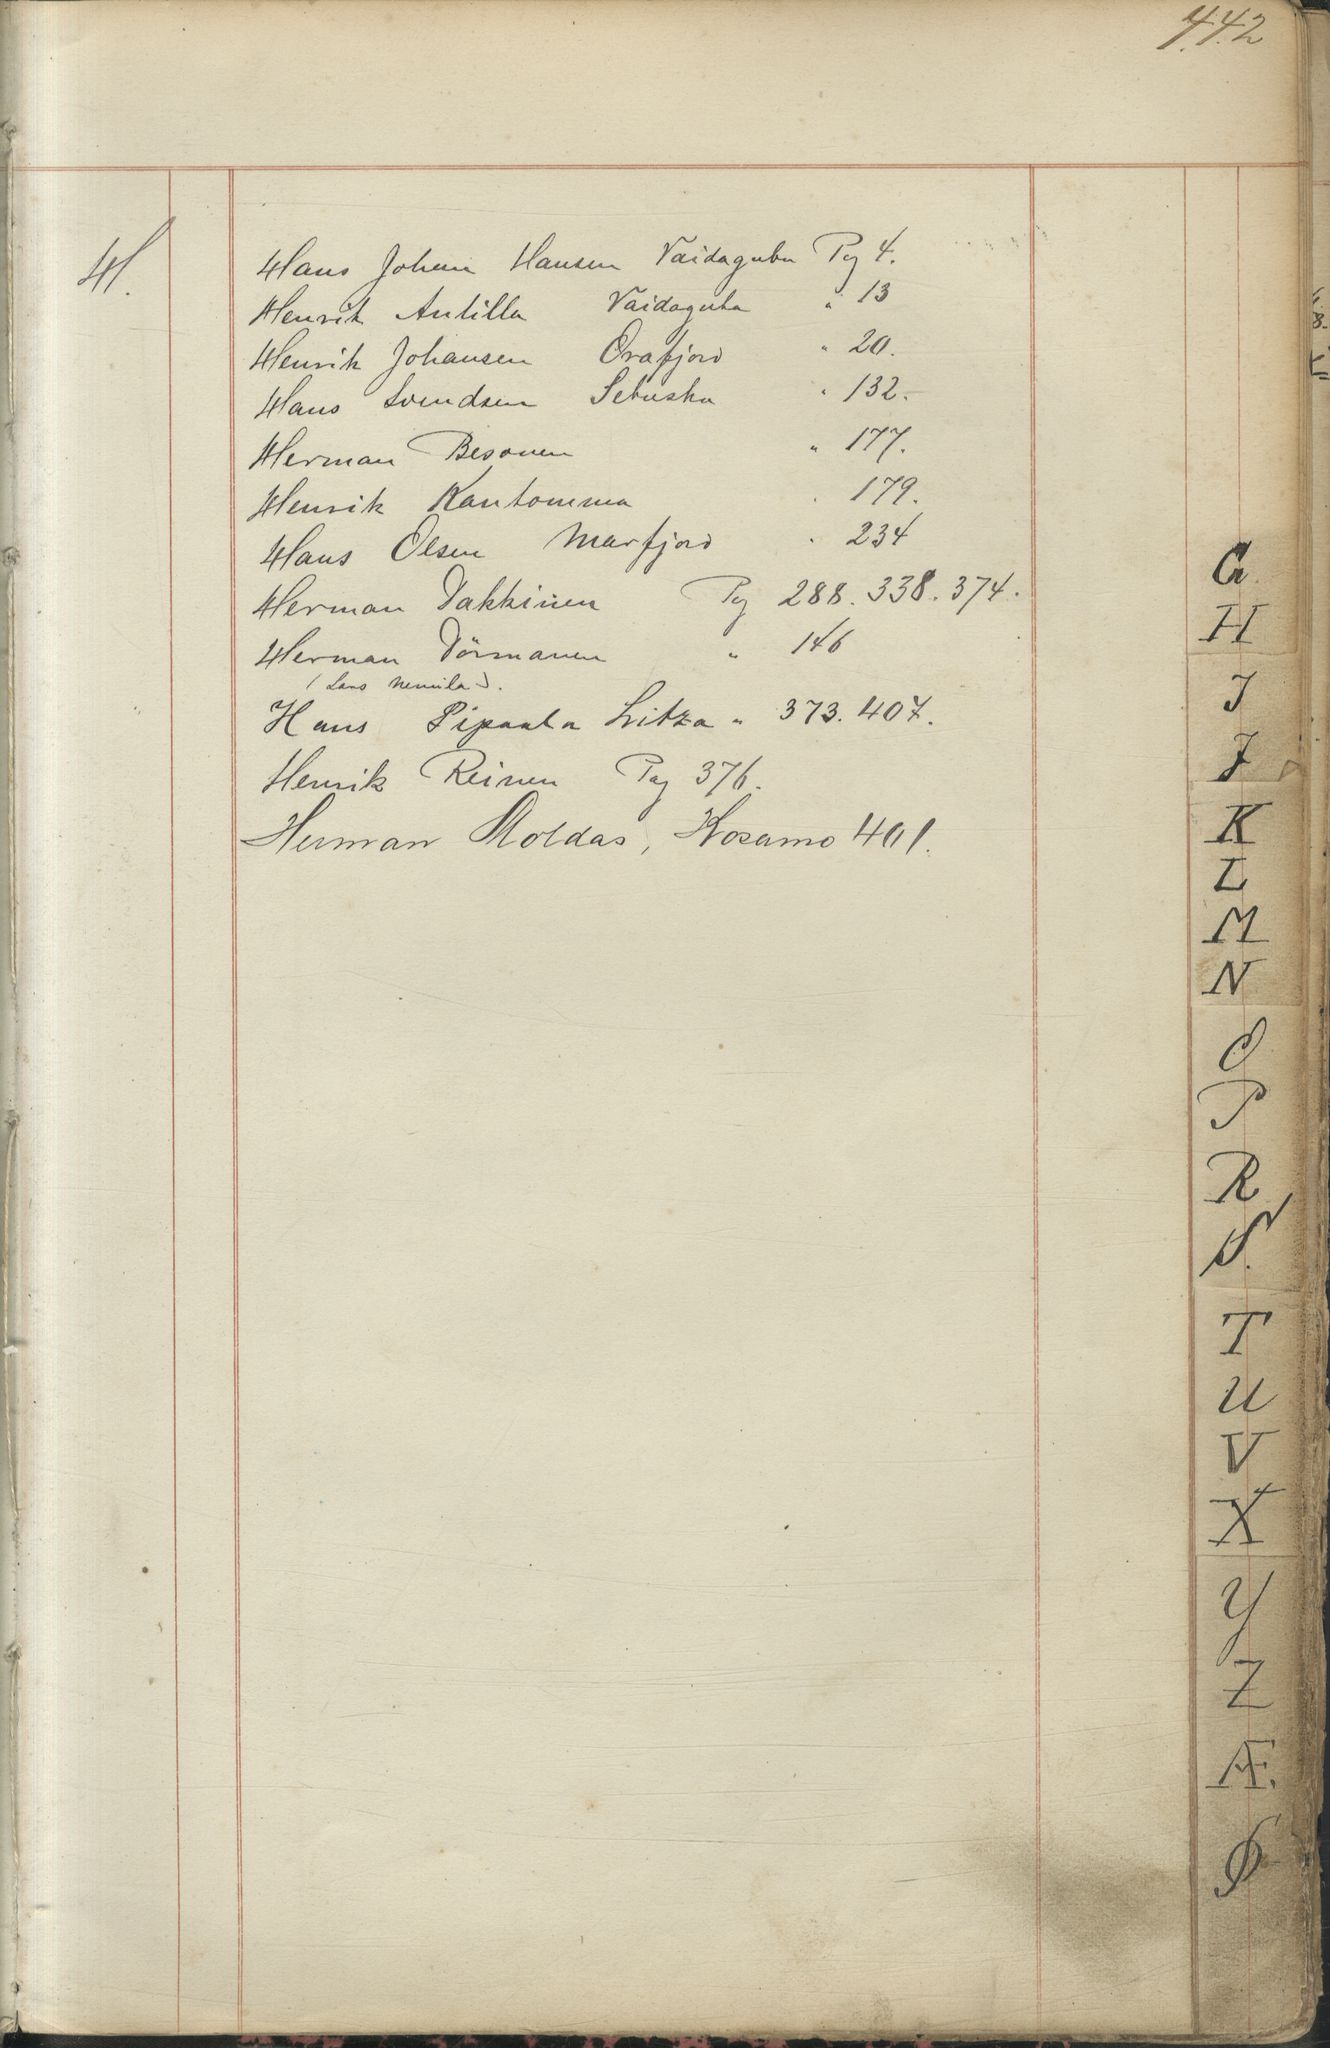 442
H.
Hans Johan Hansen Vaidaguba Pag 4.
Henrik Antilla Vaidaguba " 13
Henrik Johansen Orafjord " 20.
Hans Svendsen Sebuska " 132.
Herman Besonen " 177.
Henrik Kantomma " 179.
Hans Olsen Marfjord " 234
Herman Vakkinen Pag 288. 338. 374.
Herman Törmanen " 146
(Lars Nemila).
Hans Pipaala Litza " 373. 407.
Henrik Reinen Pag 376.
Herman Moldas, Kosamo 401.
G.
H
I
J
K
L
M
N
O
P
R
S.
T
U
V
X
Y
Z
Æ.
Ø